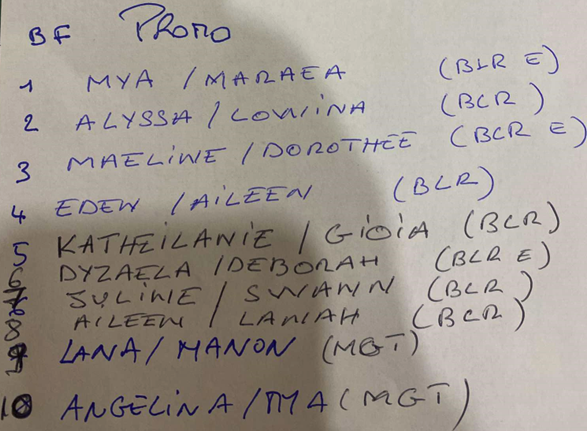 BF PROMO
1 MYA / MARAEA (BLR E)
2 ALYSSA / LOWINA (BCR)
3 MAELINE / DOROTHÉE (BCR E)
4 EDEN / AILEEN (BLR)
5 KATHEILANIE / GIOIA (BLR)
6 DYZAELA / DEBORAH (BLR E)
7 JULINE / SWANN (BLR)
8 AILEEN / LANIAH (BCR)
9 LANA / MANON (MGT)
10 ANGELINA / MYA (MGT)